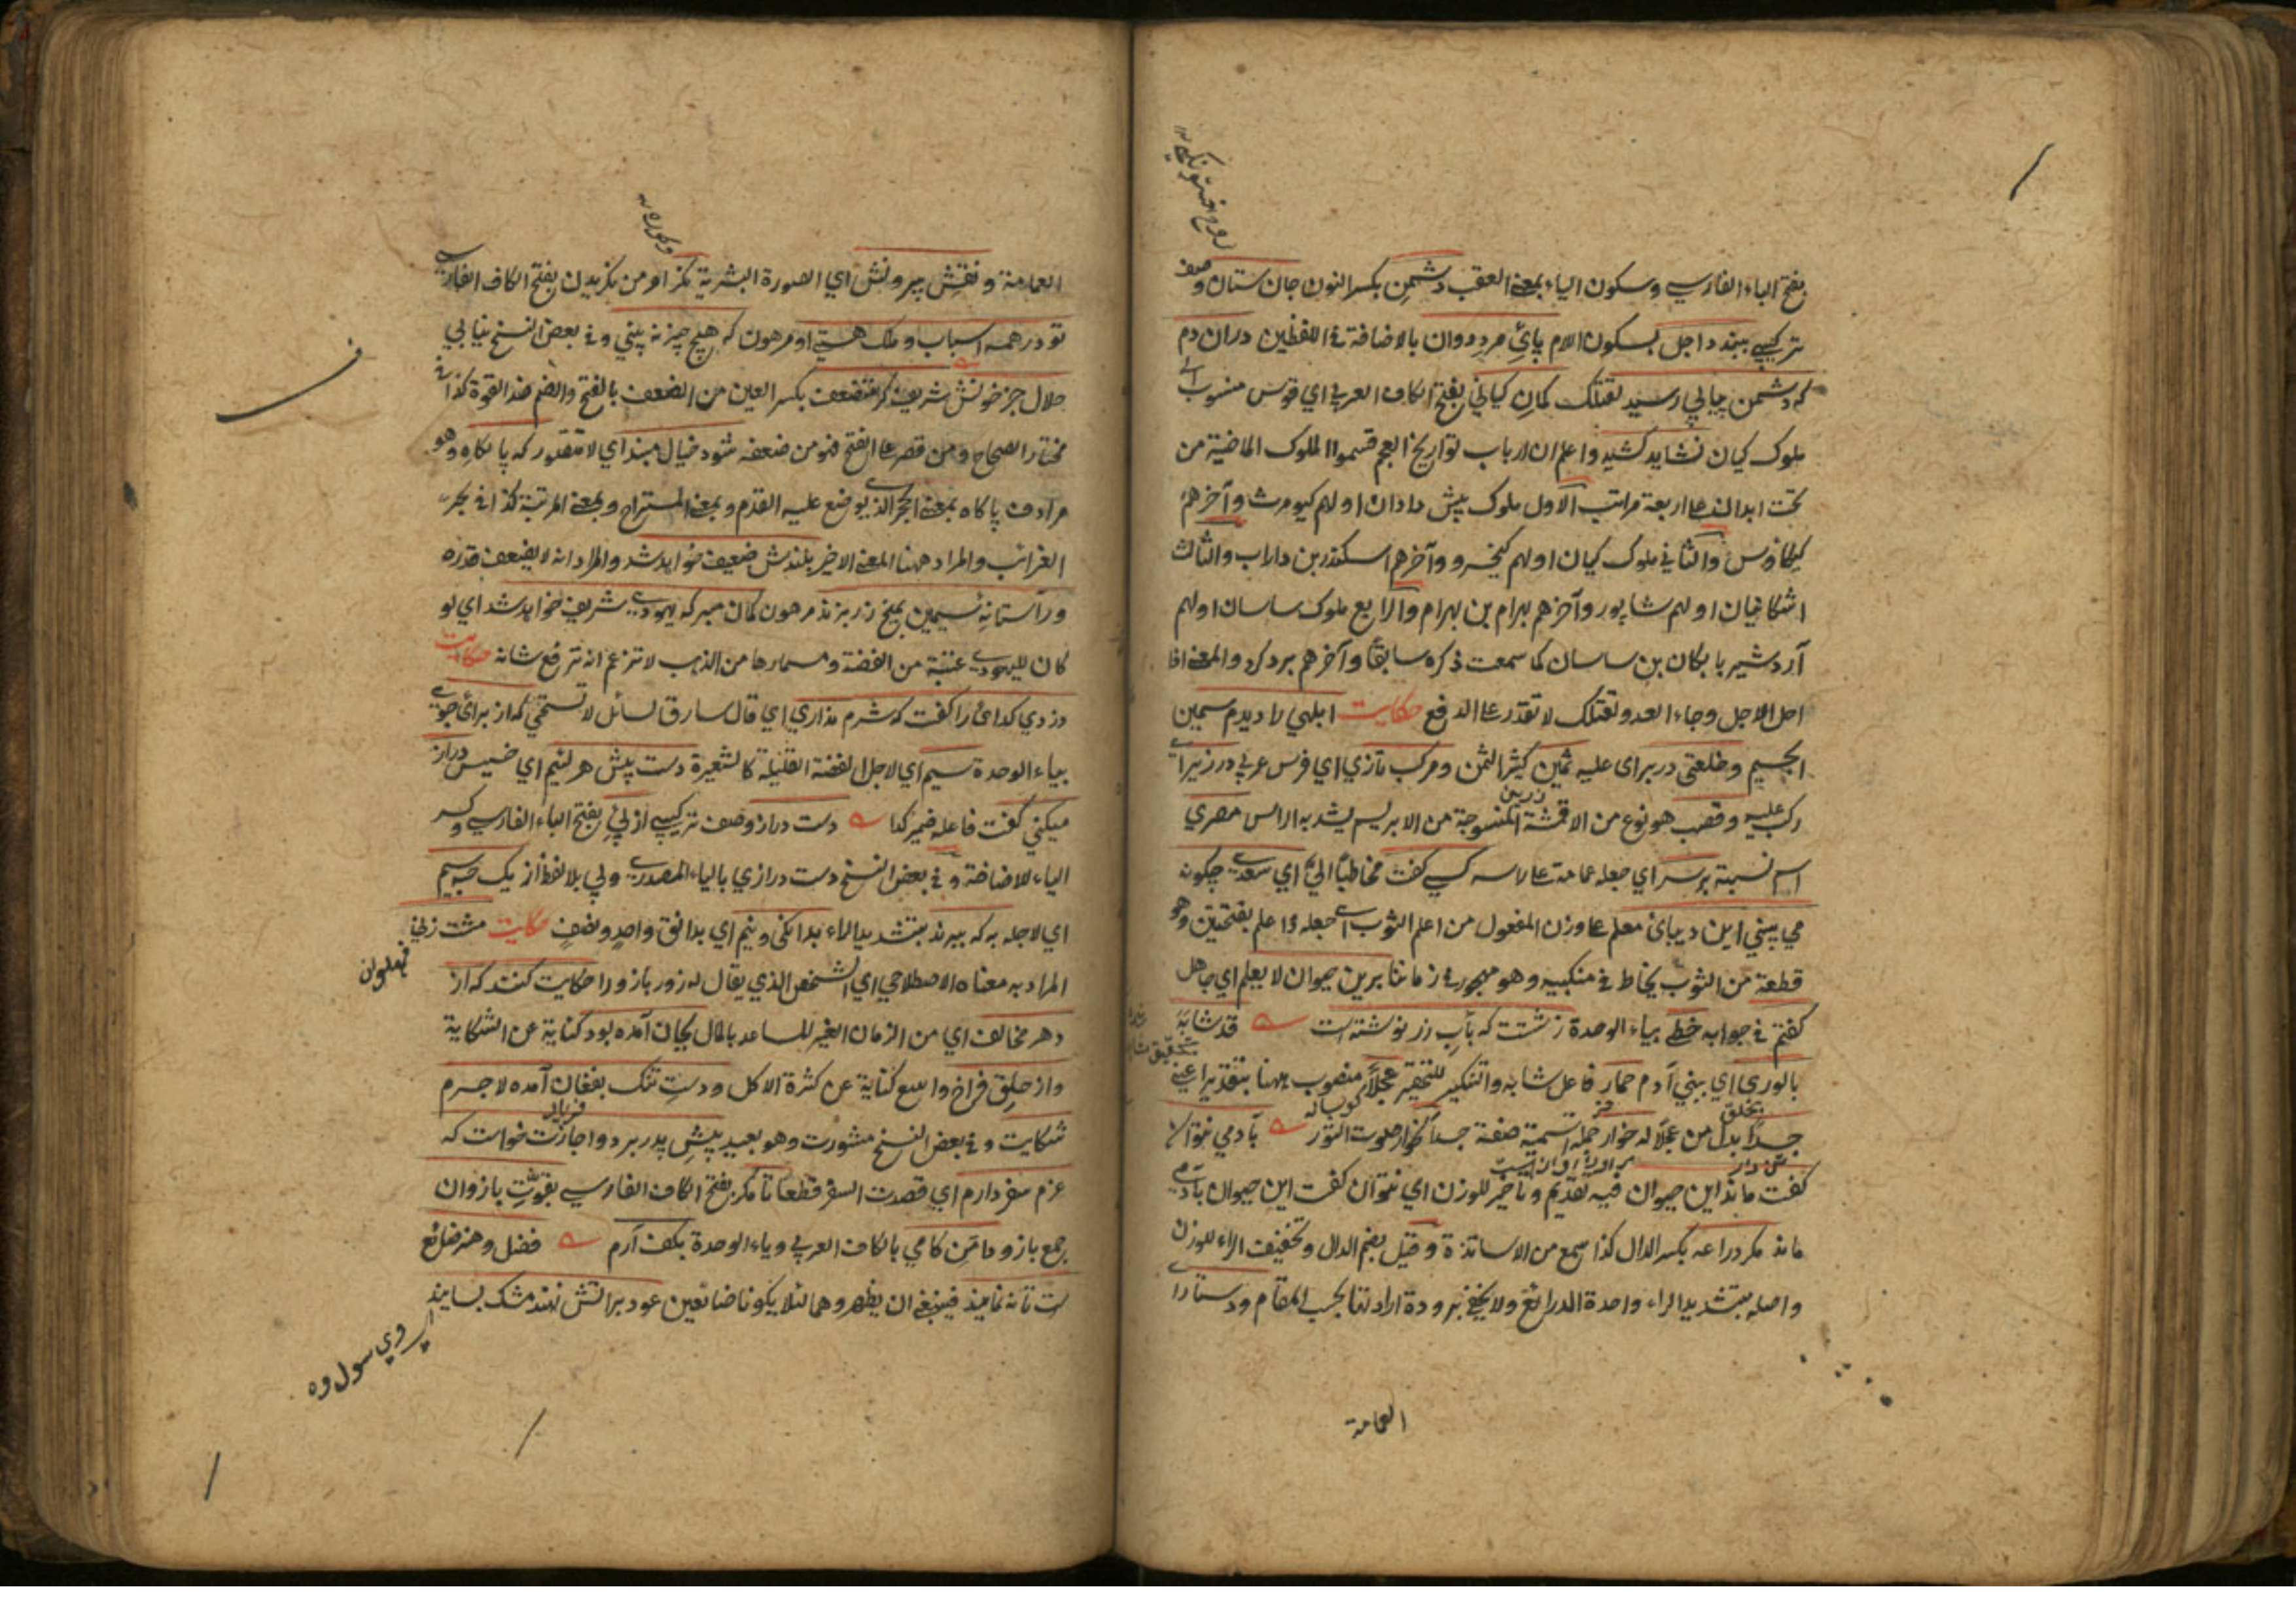 بفتح الباء الفارسي وسكون الياء بمعنى العقب دشمن بكسر النون جان ستان وصف
تركيبي ببندد اجل بسكون اللام پائ مرد دوان بالاضافة في اللفظين دران دم
كه دشمن پياپي رسيد لقتلك كمان كياني بفتح الكاف العربي اي قوس منسوب الى
ملوك كيان نشايد كشيد واعلم ان ارباب تواريخ العجم قسموا الملوك الماضية من
تحت ابدا على اربعة مراتب الاول ملوك پيش دادان اولهم كيومرث وآخرهم
والثاني ملوك كيان اولهم كيخسرو وآخرهم اسكندر بن داراب والثالث
اشكانيان اولهم شاپور وآخرهم بهرام بن بهرام والرابع ملوك ساسان اولهم
آردشير بابكان بن ساسان كما سمعت ذكره سابقا وآخرهم يزدكرد والمعنى اذا
احل الاجل وجاء العدو لقتلك لا تقدر على الدفع حكايت ابلهي را ديدم سمين
الجسيم وخلعتي دربر اى عليه ثمين كثير الثمن ومركب تازي اي فرس عربي در زير اى
ركب عليه وقصب هو نوع من الاقمشة المنسوجة من الابريسم يشد به الراس مصري
زرين
اسم نسبة برسر اي جعله عمامة على راسه كسي كفت مخاطبا الي اي سعدي چكونه
مي بيني اين ديبائ معلم على وزن المفعول من اعلم الثوب اى جعله ذا علم بفتحتين وهو
قطعة من الثوب يخاط في منكبيه وهو مهجور في زماننا برين حيوان لا يعلم اي جاهل
كفتم في جوابه خطي بياء الوحدة زشتت كه بآب زر نوشته است قد شابه
بالورى اي ببني آدم حمار فاعل شابه والتنكير للتحقير عجلا منصوب ههنا بتقدير اعني
جسدا بدل من عجلا له خوار جملة اسمية صفة جسدا خوار صوت الثور بآدمي نتوان
كفت ماند اين حيوان فيه تقديم وتاخير للوزن اي نتوان كفت اين حيوان بآدمي
ماند مكر دراعه بكسر الدال كذا سمع من الاساتذة وقيل بضم الدال وتخفيف الراء للوزن
واصله بتشديد الراء واحدة الدرائع ولا يخفى برودة ارادتها بحسب المقام ودستارا
العمامة
العمامة ونقش بيرونش اي الصورة البشرية مكر او من بكرديدن بفتح الكاف الفارسي
تو در همه اسباب وملك هستي او مرهون كه هيچ چيز نه بيني وفي بعض النسخ نيابي
حلال جز خونش شريف كر متضعف بكسر العين من الضعف بالفتح والضم ضد القوة كذا في
مختار الصحاح ومن قصر على الفتح فهو من ضعفه شود خيال مبند اي لا تتصور كه پايكاه وهو
مرادف پاكاه بمعنى الحجر الذي يوضع عليه القدم وبمعنى المستراح وبمعنى المرتبة كذا في بحر
الغرائب والمراد ههنا المعنى الاخير بلندش ضعيف خواهد شد والمراد انه لا يضعف قدره
ور آستانه سيمين بميخ زر بزند مرهون كمان مبر كه يهودي شريف خواهد شد اي لو
كان لليهودي عتبة من الفضة ومسمارها من الذهب لا تزعم انه ترفع شانه حكايت
دزدي كدائ را كفت كه شرم نداري اي قال سارق لسائل لا تستحي كه از برائ جوي
بياء الوحدة سيم اي لاجل لفضة القليلة كالشعيرة دست پيش هر لئيم اي خسيس دراز
ميكني كفت فاعله ضمير كدا دست دراز وصف تركيبي از پئ بفتح الباء الفارسي وكسر
الياء للاضافة وفي بعض النسخ دست درازي بالياء المصدري ولي بلا لفظ از يك حبه سيم
اي لاجله به كه ببرند بتشديد الراء بدانكى ونيم اي بدانق واحد ونصف حكايت مشت زني
المراد به معناه الاصطلاحي اي الشخص الذي يقال له زور بازو را حكايت كنند كه از
دهر مخالف اي من الزمان الغير المساعد بالمال بجان آمده بود كناية عن الشكاية
واز حلق فراخ واسع كناية عن كثرة الاكل ودست تنك بفغان آمده لا جرم
فرياد
شكايت وفي بعض النسخ مشورت وهو بعيد پيش پدر برد واجازت خواست كه
عزم سفر دارم اي قصدت السفر قطعا تا مكر بفتح الكاف الفارسي بقوت بازوان
جمع بازو دامن كامي بالكاف العربي وياء الوحدة بكف آرم فضل وهنر ضائع
ست تا نه نمايند فينبغي ان يظهروهما لئلا يكونا ضائعين عود بر آتش نهند مشك بسايند